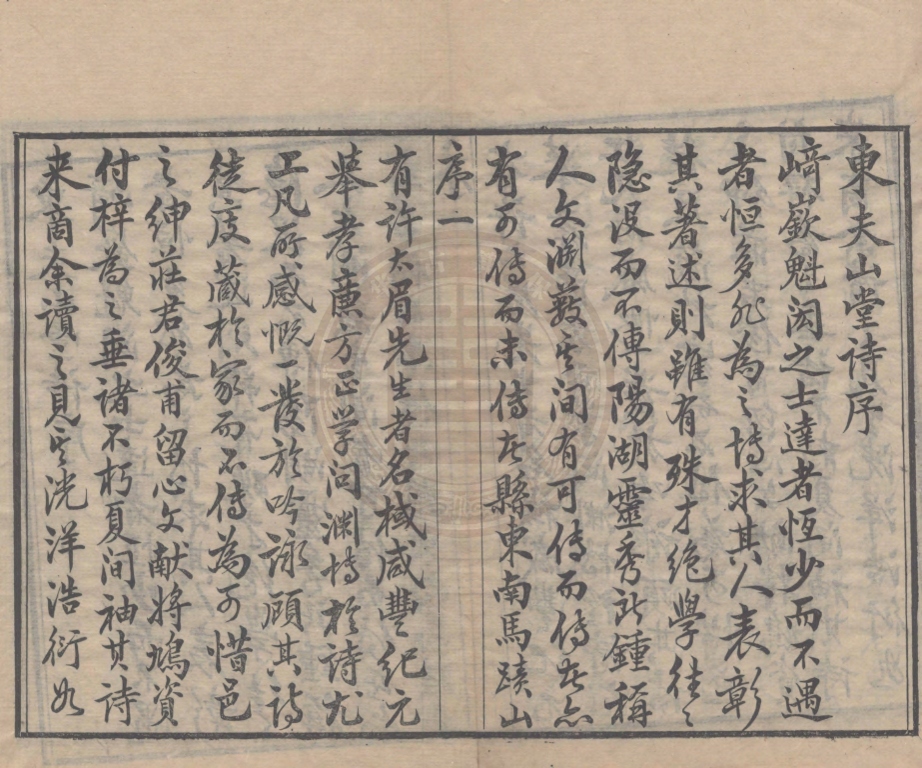 東夫山堂詩序
﨑嶔魁閎之士達者恆少而不遇
者恒多非為之博求其人表彰
其著述則雖有殊才絶學往々
隐没而不傳陽湖靈秀所鍾稱
人文渊薮其间有可傳而傳者亦
有可傳而未傳者縣東南馬蹟山
序一
有許太眉先生者名棫咸豐紀元
舉孝廉方正学问渊博於詩尤
工凡所感慨一發於吟詠顧其詩
徒庋藏於家而不傳為可惜邑
之紳莊君俊甫留心文献将鳩資
付梓為之垂諸不朽夏间袖其詩
来商余讀之見其洸洋浩衍如